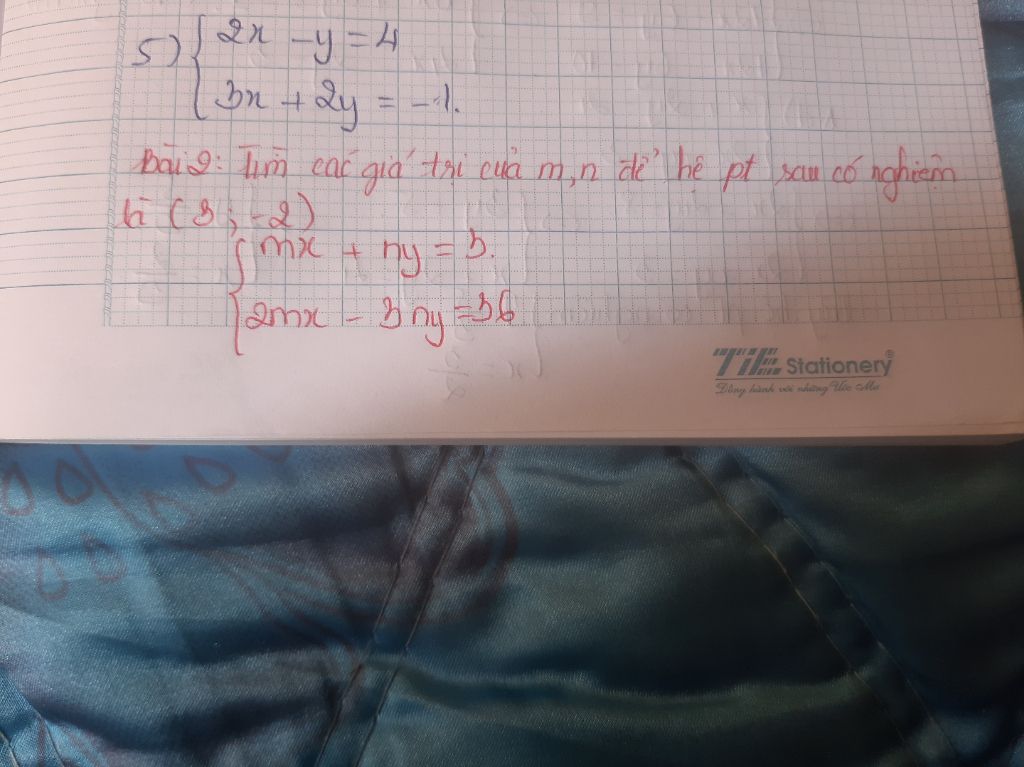 5) { 2x - y = 4
3x + 2y = -1.
Bài 2: Tìm các giá trị của m, n để hệ pt sau có nghiệm
là (3; -2)
{ mx + ny = 3.
2mx - 3ny = 36
TiTi Stationery®
Đồng hành với những Ước Mơ